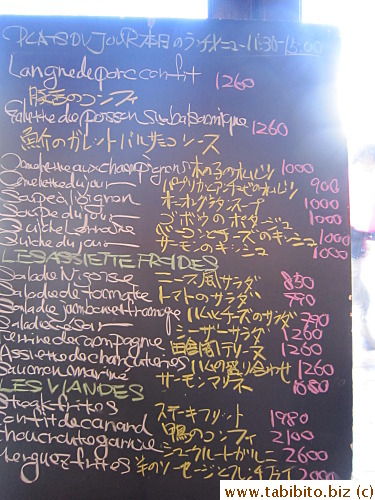 PLATS DU JOUR 本日のランチメニュー 11:30-15:00
Langue de porc confit 1260
豚舌のコンフィ
Galette de poisson su balsamique 1260
魚介のガレットバルサミコソース
Omelette aux champignons 木の子のオムレツ 1000
Omelette du jour パプリカとチーズのオムレツ 900
オニオングラタンスープ 1000
Soupe du jour ゴボウのポタージュ 1000
Quiche Lorraine ベーコンとチーズのキッシュ 1000
Quiche du jour サーモンのキッシュ 1000
LES ASSIETTE FROIDES
Salade Niçoise ニース風サラダ 850
Salade de tomate トマトのサラダ
Salade jambon et fromage ハムとチーズのサラダ 790
シーザーサラダ 1260
Terrine de campagne 田舎風テリーヌ 1260
Assiette de charcuteries ハムの盛り合わせ 1260
Saumon mariné サーモンマリネ
LES VIANDES
Steak frites ステーキフリット 1980
Confit de canard 鴨のコンフィ 2100
choucroute garnie シュークルートガルニ 2600
Merguez frites 羊のソーセージとフレンチフライ 2000
www.tabibito.biz (c)